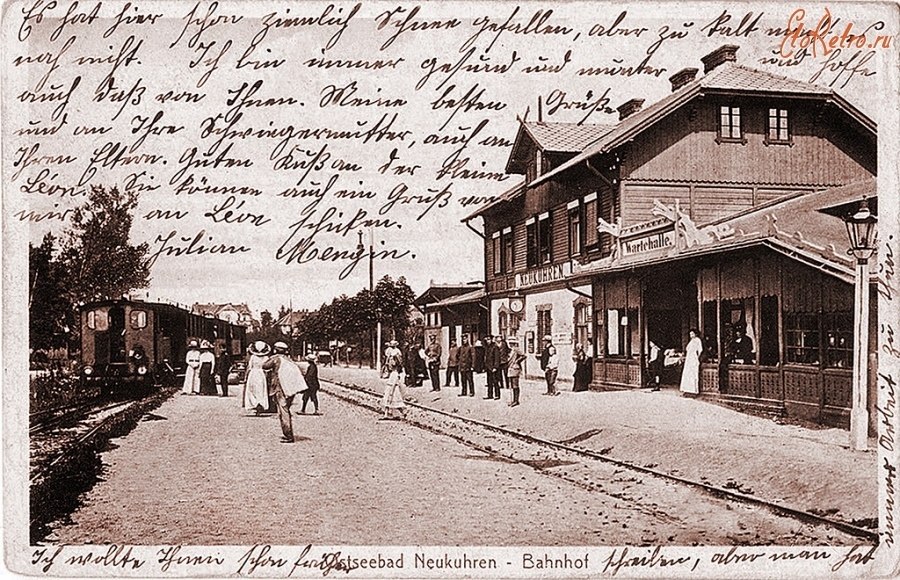 Es hat hier schon ziemlich Schnee gefallen, aber zu kalt
noch nicht. Ich bin immer gesund und munter und hoffe
auch daß von Ihnen. Meine besten Grüße
und an Ihre Schwiegermutter, auch an
Ihren Eltern. Guten Kuß an der kleine
Léon. Sie können auch ein Gruß von
mir an Léon schicken.
Julian Mengin.
EtoRetro.ru
NEUKUHREN
Wartehalle.
Ich wollte Ihnen schon früher schreiben, aber man hat
immer Arbeit zu tun.
Ostseebad Neukuhren - Bahnhof